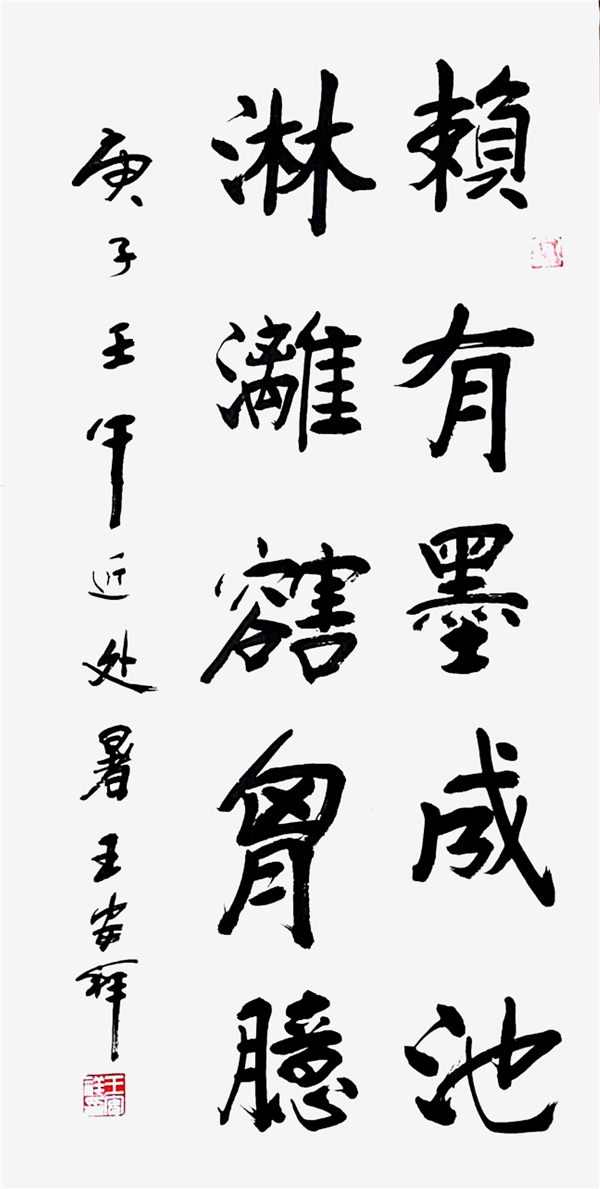 賴有墨成池
淋灕豁胷臆
庚子壬午近处暑王安祥